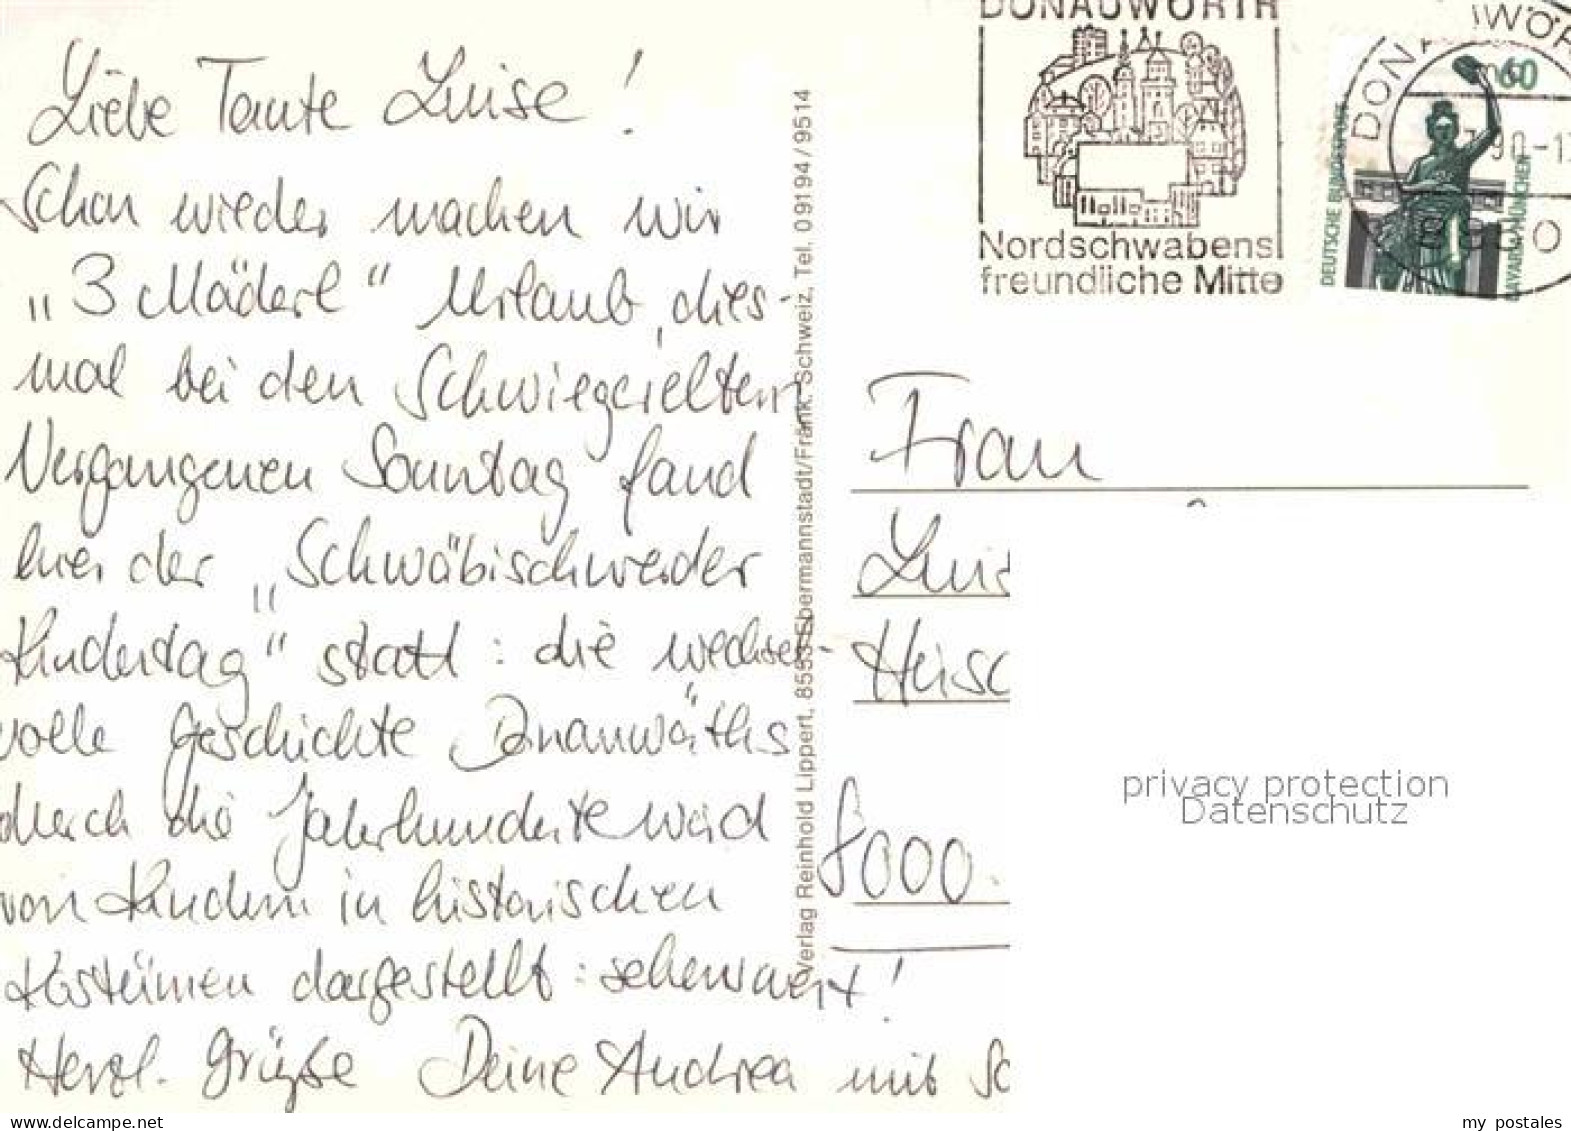 Liebe Tante Luise!
Schon wieder machen wir
„3 Mäderl" Urlaub, dies-
mal bei den Schwiegereltern
Vergangenen Sonntag fand
hier der „Schwäbischwerder
Kindertag" statt: die wechsel-
volle Geschichte Donauwörths
durch die Jahrhunderte wird
von Kindern in historischen
Kostümen dargestellt: sehenswert!
Herzl. Grüße Deine Andrea mit
Verlag Reinhold Lippert, 8553 Ebermannstadt/Fränk. Schweiz, Tel. 09194/9514
DONAUWÖRTH
Nordschwabens
freundliche Mitte
60
DEUTSCHE BUNDESPOST
BAVARIA MÜNCHEN
Frau
8000
privacy protection
Datenschutz
www.delcampe.net
my_postales